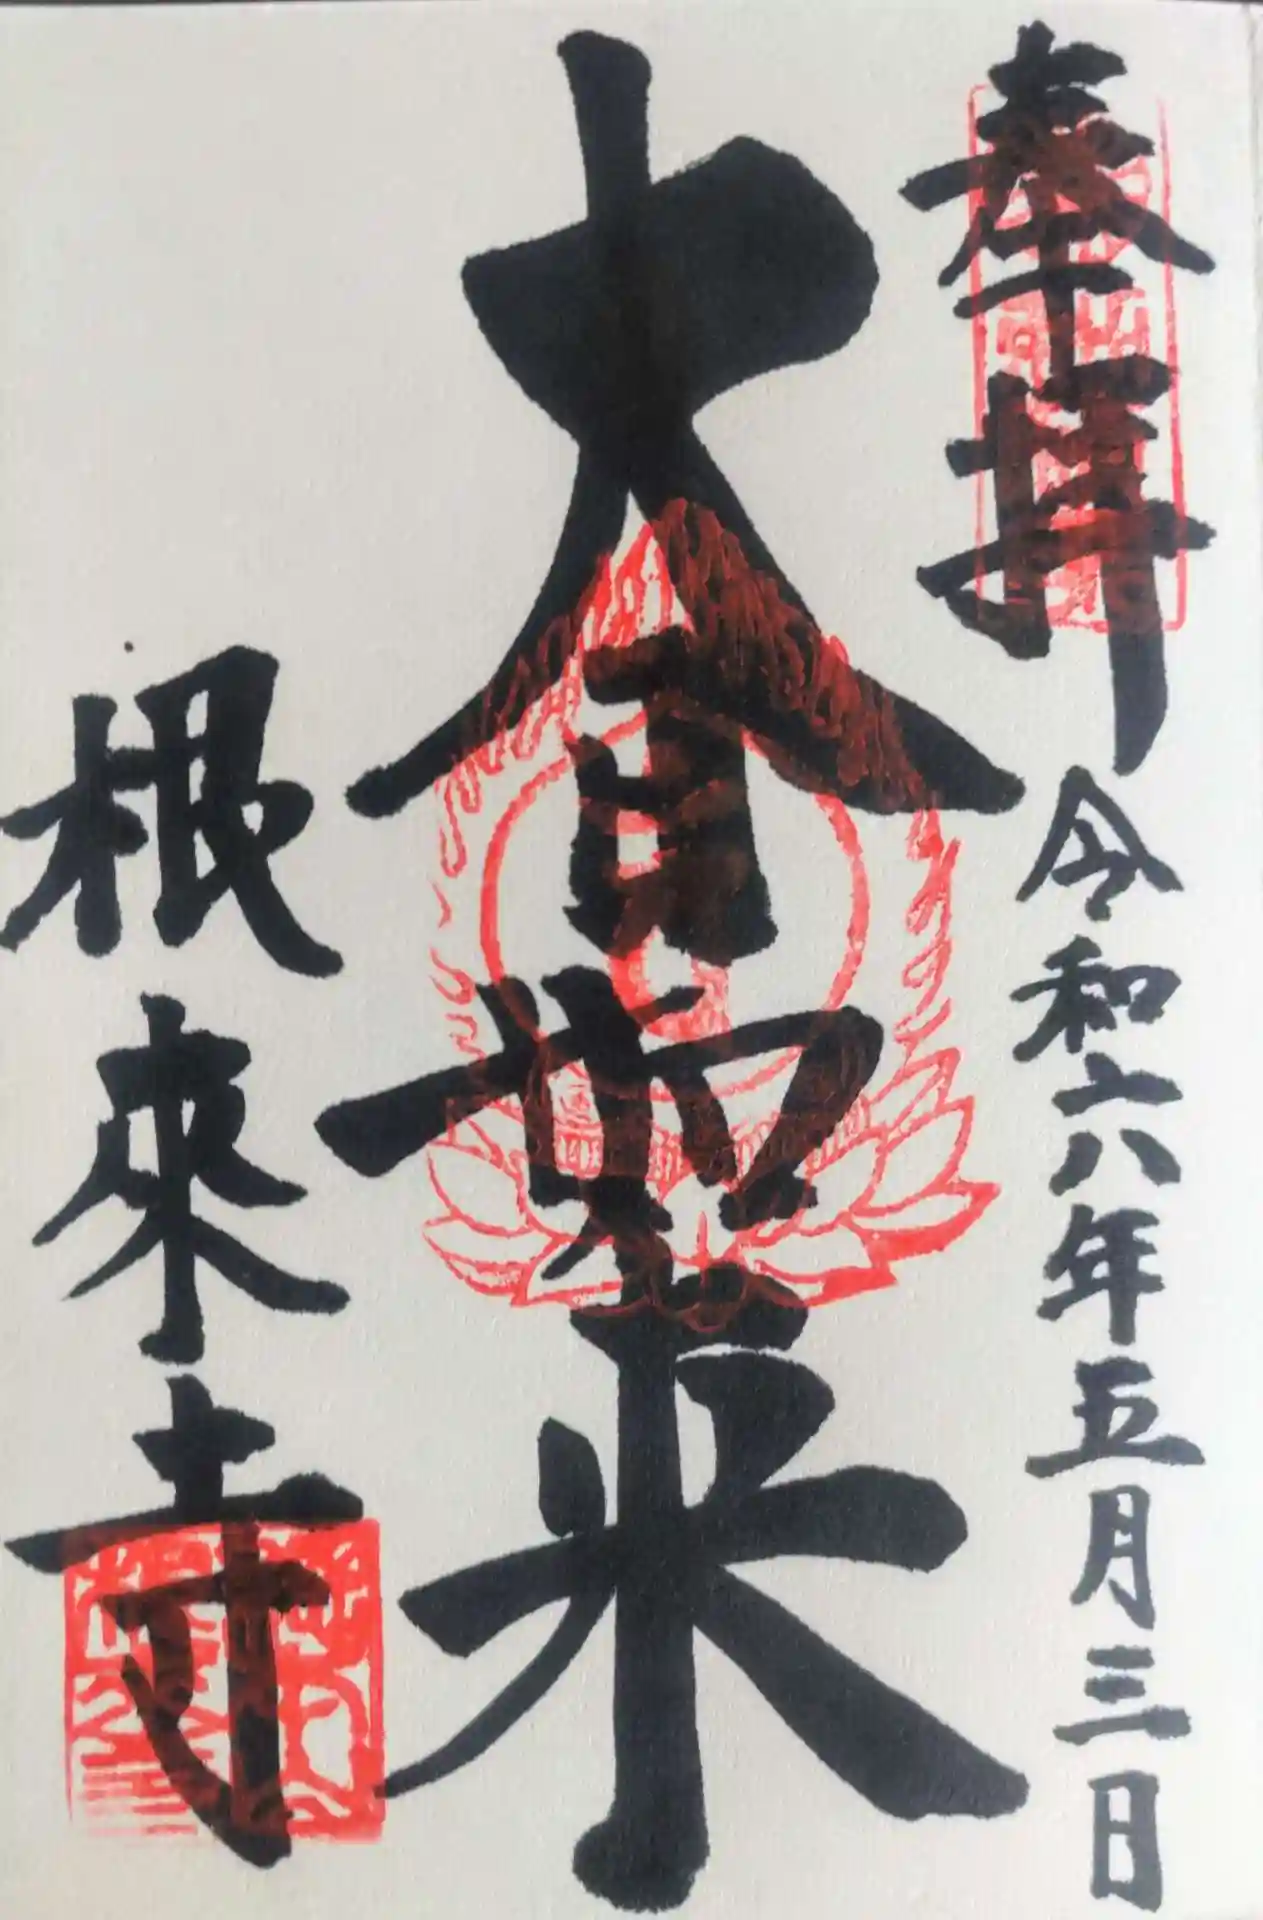 奉拝
令和六年五月三日
大日如来
根來寺